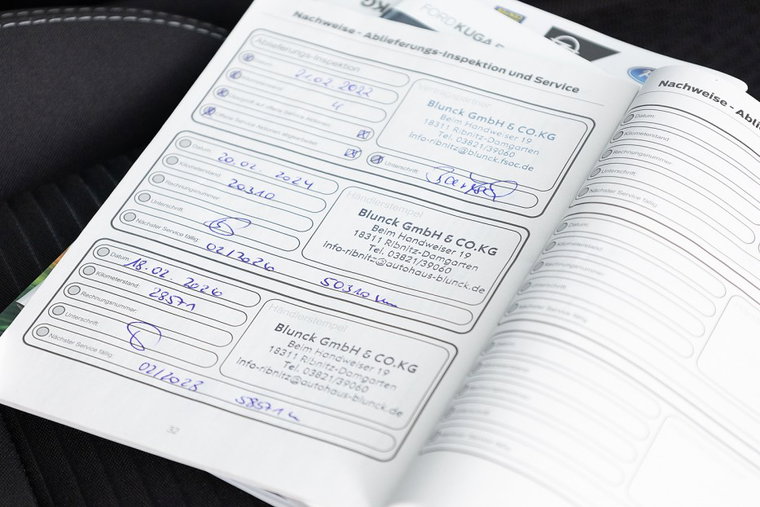 FORD KUGA
Nachweise - Ablieferungs-Inspektion und Service
Ablieferungs-Inspektion
21.02 2022
4
Blunck GmbH & CO.KG
Beim Handweiser 19
18311 Ribnitz-Damgarten
Tel. 03821/39060
info-ribnitz@blunck.fsoc.de
Unterschrift
Datum
20.02. 2024
Kilometerstand
20310
Rechnungsnummer
Unterschrift
Nächster Service fällig
02/2026
50310 km
Händlerstempel
Blunck GmbH & CO.KG
Beim Handweiser 19
18311 Ribnitz-Damgarten
Tel. 03821/39060
info-ribnitz@autohaus-blunck.de
Datum
18.02. 2026
Kilometerstand
28571
Rechnungsnummer
Unterschrift
Nächster Service fällig
02/2028
58571 km
Händlerstempel
Blunck GmbH & CO.KG
Beim Handweiser 19
18311 Ribnitz-Damgarten
Tel. 03821/39060
info-ribnitz@autohaus-blunck.de
32
Nachweise - Ablie
Datum
Kilometerstand
Rechnungsnummer
Unterschrift
Nächster Service fällig
Datum
Kilometerstand
Rechnungsnummer
Unterschrift
Nächster Service fällig